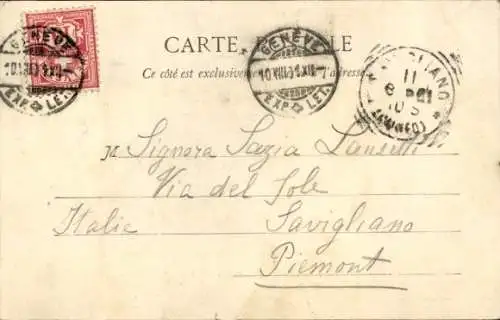 GENÈVE
10.VIII.01.XII-
EXP. LET.
CARTE POSTALE
Ce côté est exclusivement l'adresse.
GENÈVE
10.VIII.01.XII-
EXP. LET.
SAVIGLIANO
11
8
10 S
(CUNEO)
Signora Lanselli
Via del Sole
Italie Savigliano
Piemont